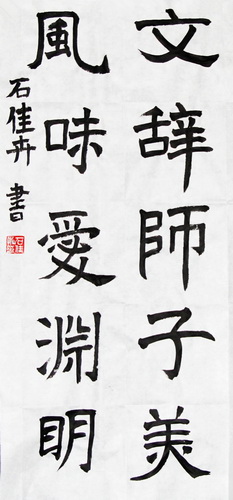 文辞師子美
風味愛淵明
石佳卉 書